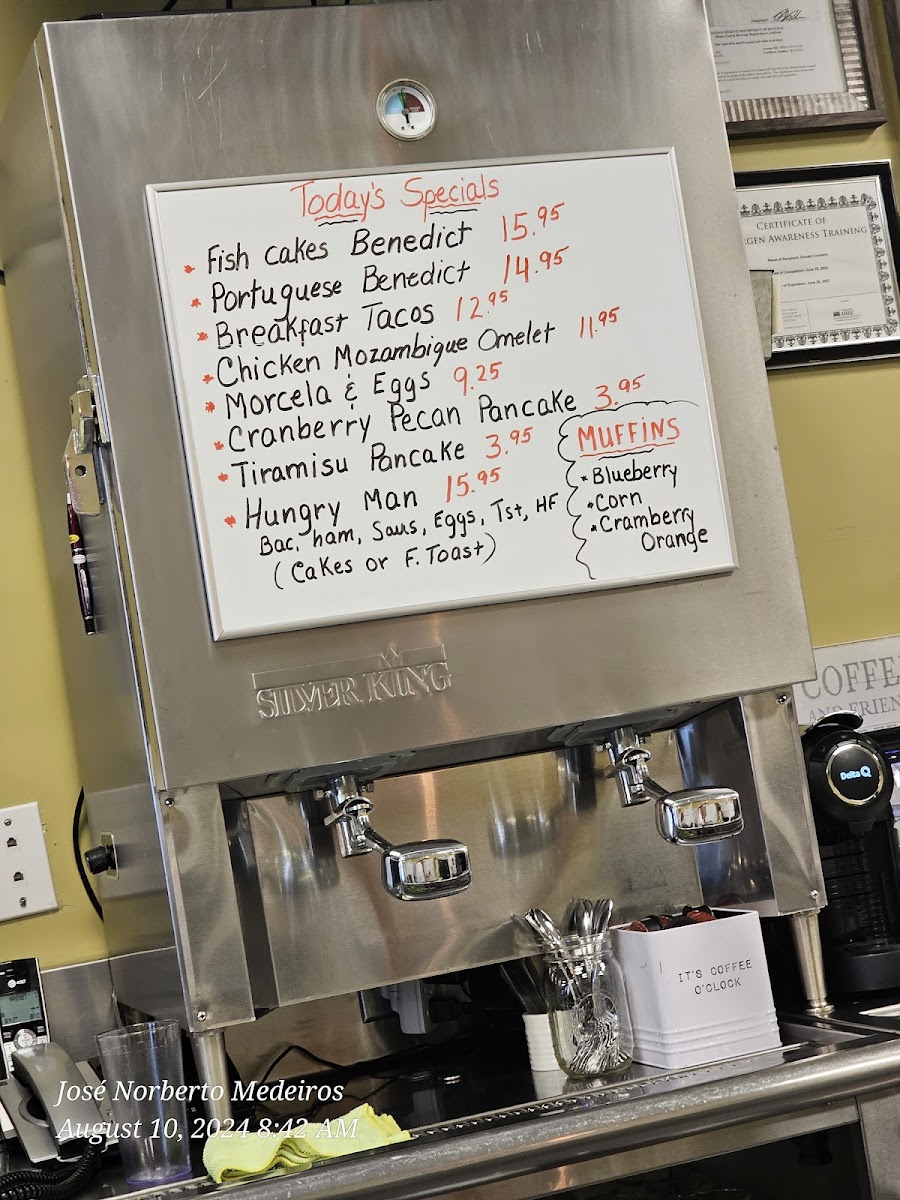 Today's Specials
* Fish cakes Benedict 15.95
* Portuguese Benedict 14.95
* Breakfast Tacos 12.95
* Chicken Mozambique Omelet 11.95
* Morcela & Eggs 9.25
* Cranberry Pecan Pancake 3.95
* Tiramisu Pancake 3.95
* Hungry Man 15.95
Bac, ham, Saus, Eggs, Tst, HF
(Cakes or F. Toast)
MUFFINS
* Blueberry
* Corn
* Cramberry
Orange
SILVER KING
CERTIFICATE OF
RGEN AWARENESS TRAINING
COFFEE
AND FRIEN
Delta Q
IT'S COFFEE
O'CLOCK
at&t
José Norberto Medeiros
August 10, 2024 8:42 AM